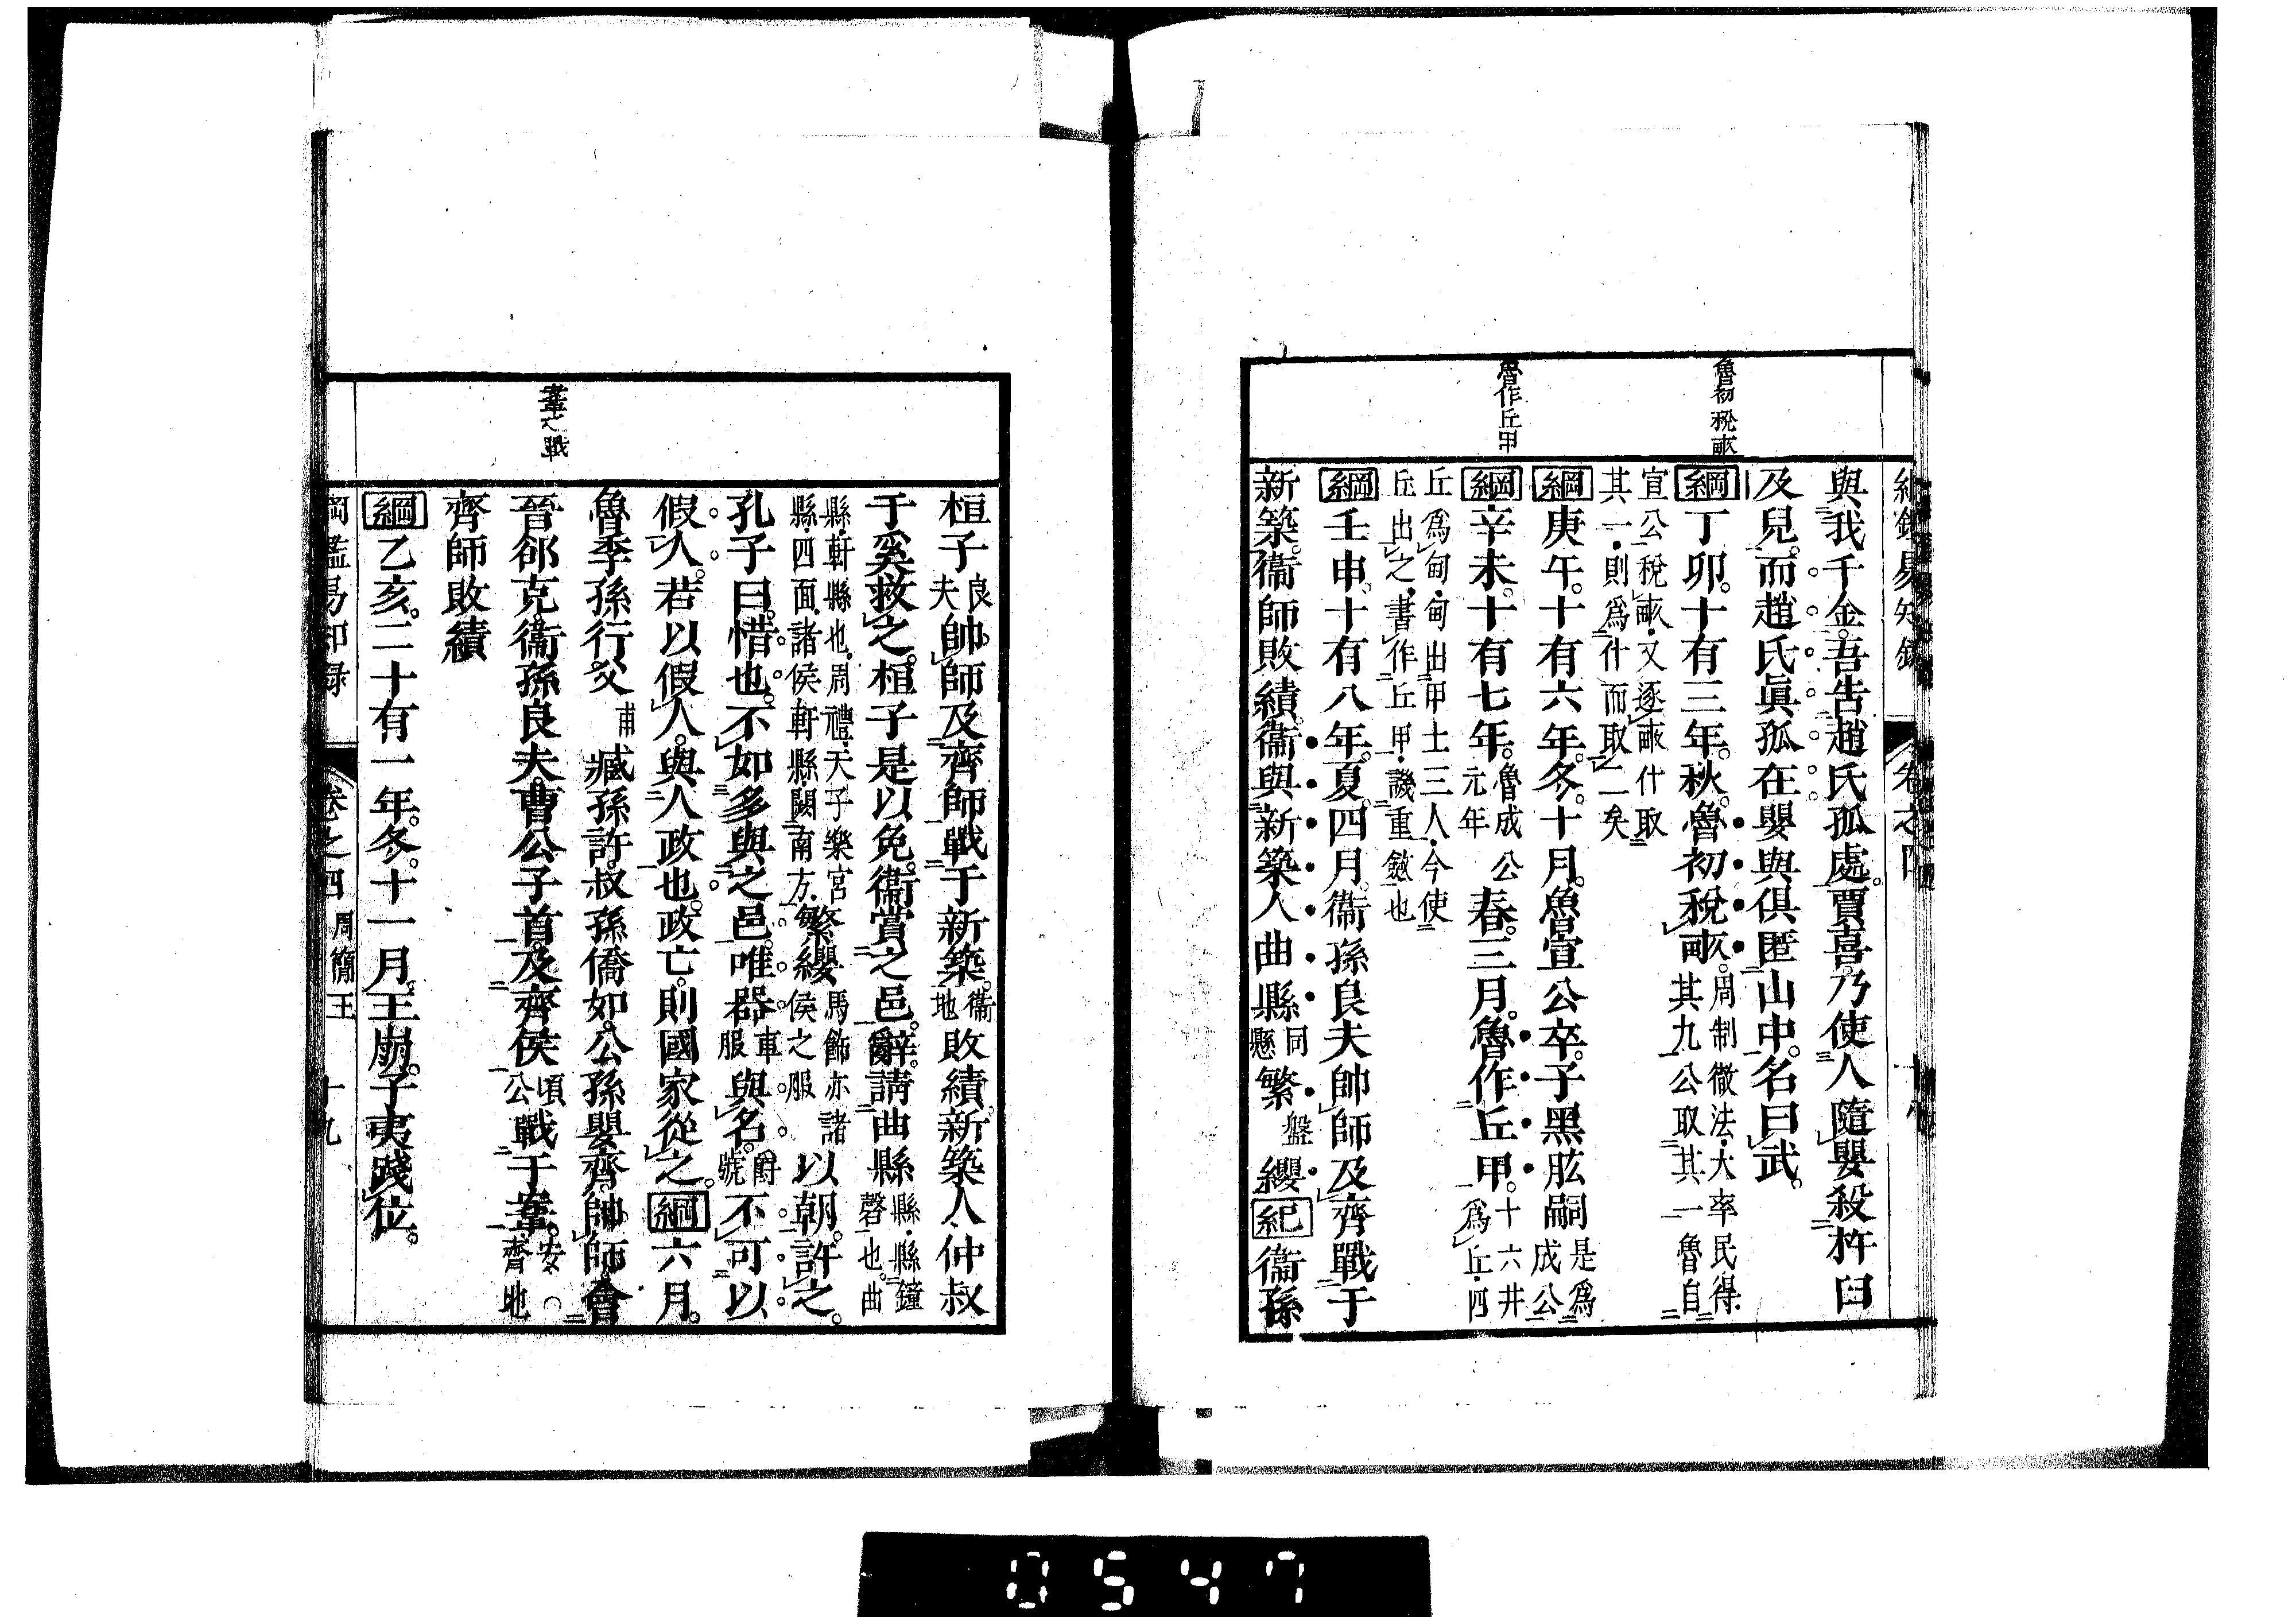 魯初稅畝
魯作丘甲
與我千金。吾告趙氏孤處。賈喜。乃使人隨嬰殺杵臼
及兒。而趙氏眞孤在。嬰與俱匿山中。名曰武。
綱丁卯。十有三年。秋。魯初稅畝。周制徹法。大率民得其九。公取其一。魯自
宣公稅畝。又逐畝什取其一。則爲什而取二矣
綱庚午。十有六年。冬。十月。魯宣公卒。子黑肱嗣是爲成公
綱辛未。十有七年。魯成公元年春。三月。魯作丘甲。十六井爲丘。四
丘爲甸。甸出甲士三人。今使丘出之。書作丘甲。譏重斂也
綱壬申。十有八年。夏。四月。衞孫良夫帥師及齊戰于
新築。衞師敗績。衞與新築人曲縣同懸繁盤纓紀衞孫
鞌之戰
桓子良夫帥師及齊師戰于新築。衞地敗績。新築人仲叔
于奚救之。桓子是以免。衞賞之邑。辭。請曲縣縣。縣鐘磬也。曲
縣。軒縣也。周禮。天子樂宮縣。四面。諸侯軒縣。闕南方。繁纓馬飾亦諸侯之服以朝。許之。
孔子曰。惜也。不如多與之邑。唯器車服與名。爵號不可以
假人。若以假人。與人政也。政亡。則國家從之。綱六月。
魯季孫行父甫臧孫許。叔孫僑如。公孫嬰齊。帥師會
晉郤克。衞孫良夫。曹公子首。及齊侯頃公戰于鞌。安齊地
齊師敗績
綱乙亥。二十有一年。冬。十一月。王崩。子夷踐位。
綱鑑易知録 卷之四 周簡王 十九
0547